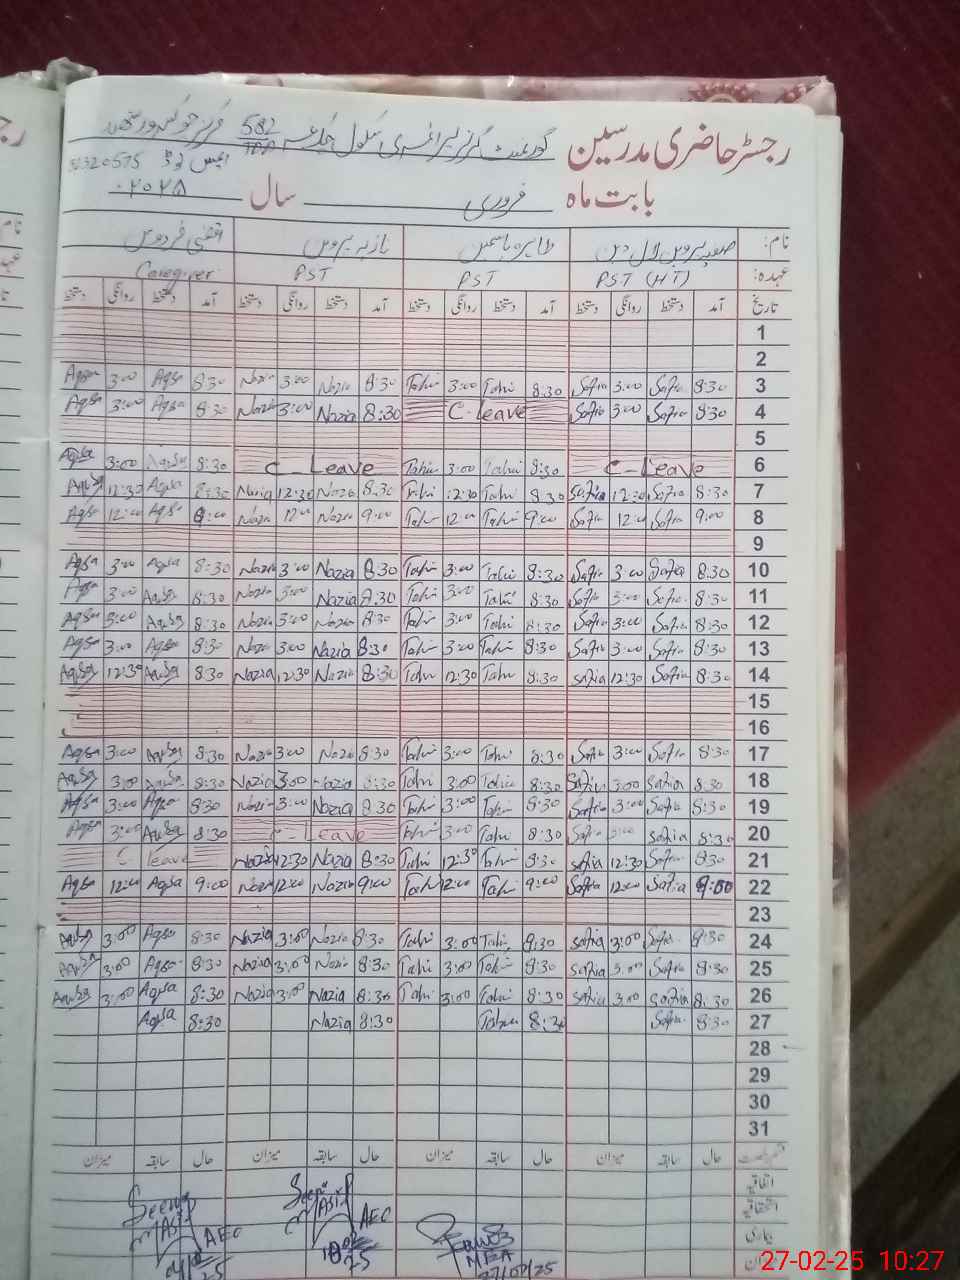 رجسٹر حاضری مدرسین گورنمنٹ گرلز پرائمری سکول 582
بابت ماہ فروری سال ۲۰۲۵
نام: طاہرہ یاسمین نازیہ پروین اقصیٰ فردوس
عہدہ: PST (HT) PST PST Caregiver
تاریخ آمد دستخط روانگی دستخط آمد دستخط روانگی دستخط آمد دستخط روانگی دستخط آمد دستخط روانگی دستخط
1
2
Aqsa 3:00 Aqsa 8:30 Nazia 3:00 Nazia 8:30 Tahir 3:00 Tahir 8:30 Safia 3:00 Safia 8:30 3
Aqsa 3:00 Aqsa 8:30 Nazia 3:00 Nazia 8:30 C-Leave Safia 3:00 Safia 8:30 4
5
Aqsa 3:00 Aqsa 8:30 C-Leave Tahir 3:00 Tahir 8:30 C-Leave 6
Aqsa 12:30 Aqsa 8:30 Nazia 12:30 Nazia 8:30 Tahir 12:30 Tahir 8:30 Safia 12:30 Safia 8:30 7
Aqsa 12:00 Aqsa 9:00 Nazia 12:00 Nazia 9:00 Tahir 12:00 Tahir 9:00 Safia 12:00 Safia 9:00 8
9
Aqsa 3:00 Aqsa 8:30 Nazia 3:00 Nazia 8:30 Tahir 3:00 Tahir 8:30 Safia 3:00 Safia 8:30 10
Aqsa 3:00 Aqsa 8:30 Nazia 3:00 Nazia 8:30 Tahir 3:00 Tahir 8:30 Safia 3:00 Safia 8:30 11
Aqsa 3:00 Aqsa 8:30 Nazia 3:00 Nazia 8:30 Tahir 3:00 Tahir 8:30 Safia 3:00 Safia 8:30 12
Aqsa 3:00 Aqsa 8:30 Nazia 3:00 Nazia 8:30 Tahir 3:00 Tahir 8:30 Safia 3:00 Safia 8:30 13
Aqsa 12:30 Aqsa 8:30 Nazia 12:30 Nazia 8:30 Tahir 12:30 Tahir 8:30 Safia 12:30 Safia 8:30 14
15
16
Aqsa 3:00 Aqsa 8:30 Nazia 3:00 Nazia 8:30 Tahir 3:00 Tahir 8:30 Safia 3:00 Safia 8:30 17
Aqsa 3:00 Aqsa 8:30 Nazia 3:00 Nazia 8:30 Tahir 3:00 Tahir 8:30 Safia 3:00 Safia 8:30 18
Aqsa 3:00 Aqsa 8:30 Nazia 3:00 Nazia 8:30 Tahir 3:00 Tahir 8:30 Safia 3:00 Safia 8:30 19
Aqsa 3:00 Aqsa 8:30 C-Leave Tahir 3:00 Tahir 8:30 Safia 3:00 Safia 8:30 20
C leave Nazia 12:30 Nazia 8:30 Tahir 12:30 Tahir 8:30 Safia 12:30 Safia 8:30 21
Aqsa 12:00 Aqsa 9:00 Nazia 12:00 Nazia 9:00 Tahir 12:00 Tahir 9:00 Safia 12:00 Safia 9:00 22
23
Aqsa 3:00 Aqsa 8:30 Nazia 3:00 Nazia 8:30 Tahir 3:00 Tahir 8:30 Safia 3:00 Safia 8:30 24
Aqsa 3:00 Aqsa 8:30 Nazia 3:00 Nazia 8:30 Tahir 3:00 Tahir 8:30 Safia 3:00 Safia 8:30 25
Aqsa 3:00 Aqsa 8:30 Nazia 3:00 Nazia 8:30 Tahir 3:00 Tahir 8:30 Safia 3:00 Safia 8:30 26
Aqsa 8:30 Nazia 8:30 Tahir 8:30 Safia 8:30 27
28
29
30
31
حال سابقہ میزان حال سابقہ میزان حال سابقہ میزان حال سابقہ میزان
اتفاقیہ
استحقاقیہ
بیماری
AEO AEO
MEA
27/02/25
27-02-25 10:27